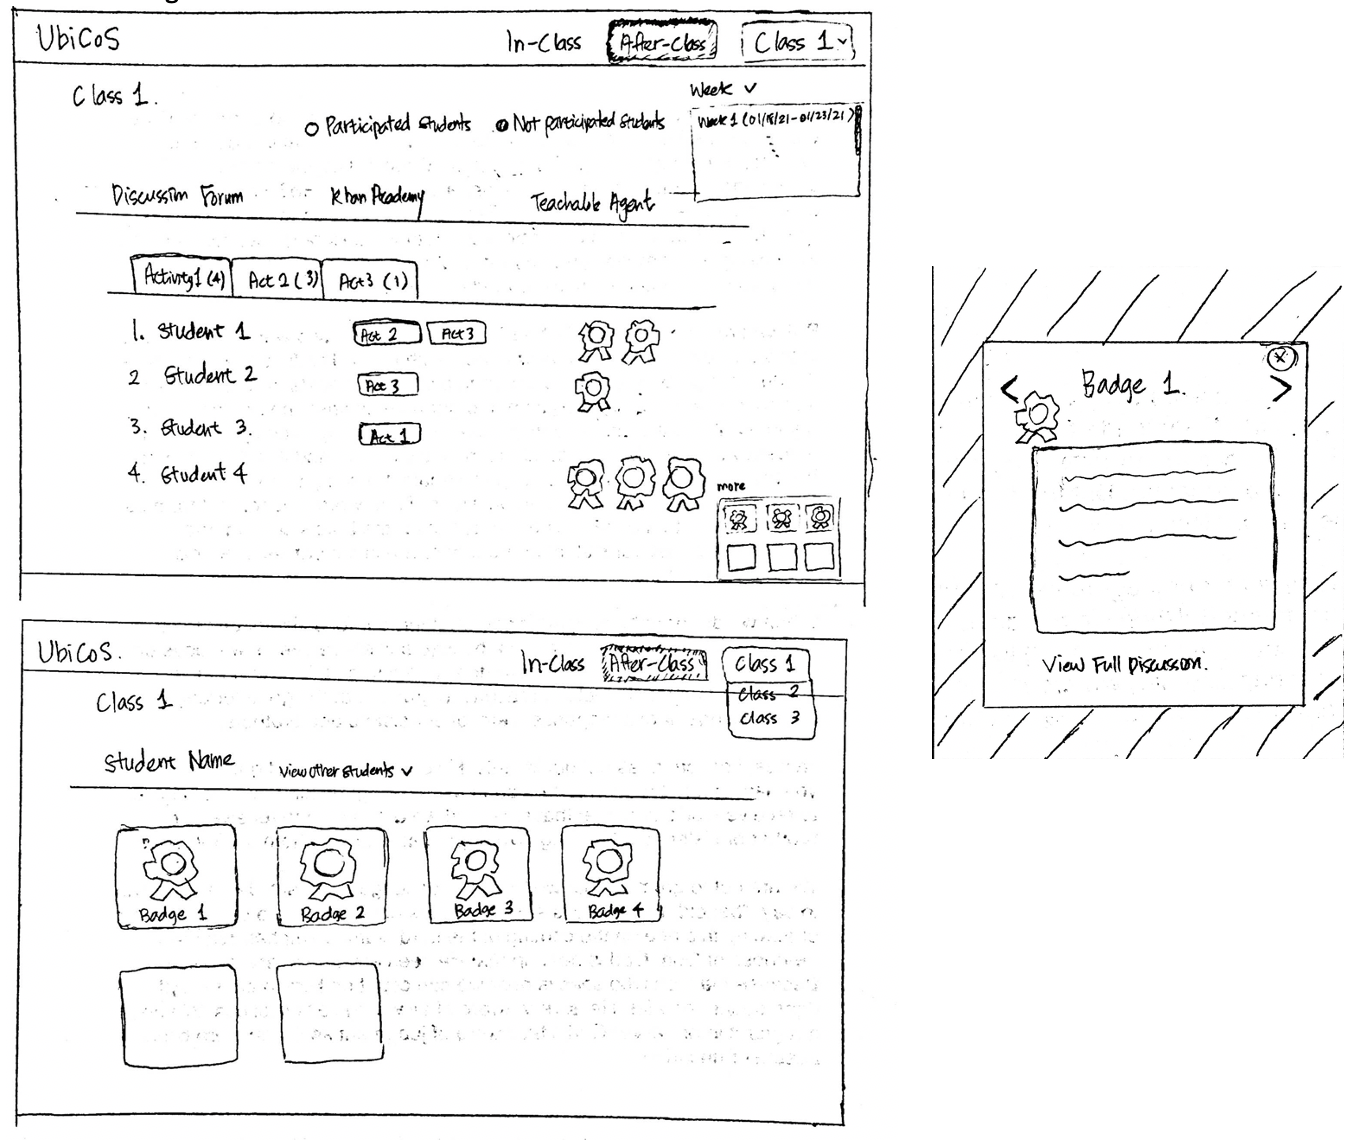 UbiCoS In-Class After-Class Class 1
Class 1.
Week
Participated Students Not participated Students
Week 1 (01/18/21-01/23/21)
Discussion Forum Khan Academy Teachable Agent
Activity1 (4) Act 2 (3) Act3 (1)
1. Student 1 Act 2 Act3
2 Student 2 Act 3
3. Student 3. Act 1
4. Student 4
more
Badge 1.
View Full Discussion.
UbiCoS. In-Class After-Class Class 1
Class 2
Class 1
Class 3
Student Name View other students
Badge 1 Badge 2 Badge 3 Badge 4